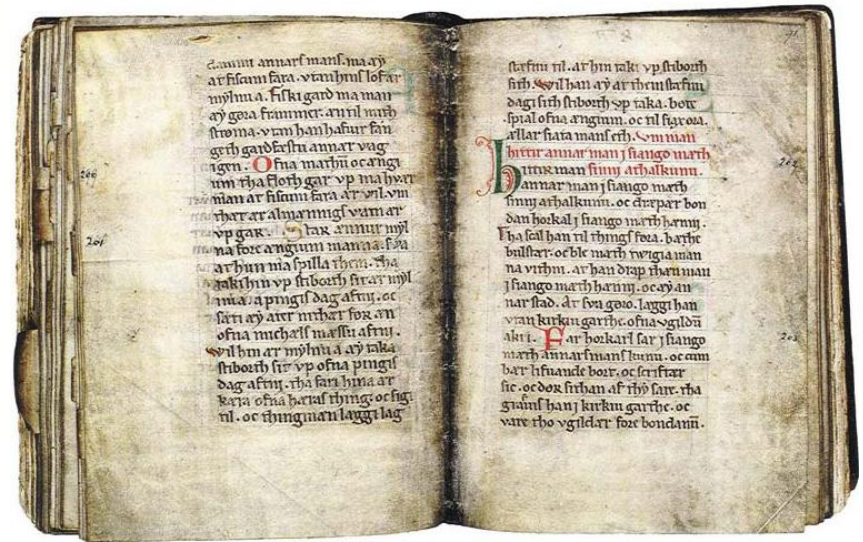 annars mans. ma æy
at fiscum fara. vtan hins lof ær
mylnu a. Fiski gard ma man
æy gøra frammer. æn til mith
strøma. vtan han hafuir fan
geth gardfæstu annær vægh
ugen. Ofna mathu oc ængi
um tha floth gar up ma hvær
man at fiscum fara ær vil. um
thæt ær almænnigs vatn ær
vp gar. Star annur myl
na fore ængium manna. sva
at hun ma spilla them. tha
taki hin vp stiborth sit ær myl
nu a. a pingis dag aftni. oc
sæti æy atær nithær for æn
ofna michæls mæssu aftni.
Wil hin ær mylnu a æy taka
stiborth sit vp ofna pingis
dag aftni. tha fari hin a ær
kæra ofna hæræs thing. oc sigi
til. oc thingmæn læggi lag
200
201
stæfnu til. at hin taki vp stiborth
sith. Wil han æy at them stæfnu
dagi sith stiborth vp taka. bøte
spial ofna ængium. oc til siax øra.
ællar siata mans eth. Um man
hittir annar man j siango mæth
hittir man sinni athalkunu.
annar man j siango mæth
sinni athalkunu. oc dræpær bon
dan horkal j siango mæth hænni.
Tha scal han til things føra. bathe
bulstær. oc ble mæth twigia man
na vitni. at han drap than man
j siango mæth hænni. oc æy an
nar stad. Ær sva gøro. læggi han
vtan kirkiu garthe. ofna vgildum
akri. Far horkarl sar j siango
mæth annars mans kunu. oc cum
bær lifuande bort. oc scriftær
sic. oc dør sithan af thy sare. tha
grafuis han j kirkiu garthe. oc
vare tho vgildær fore bondanum.
202
203